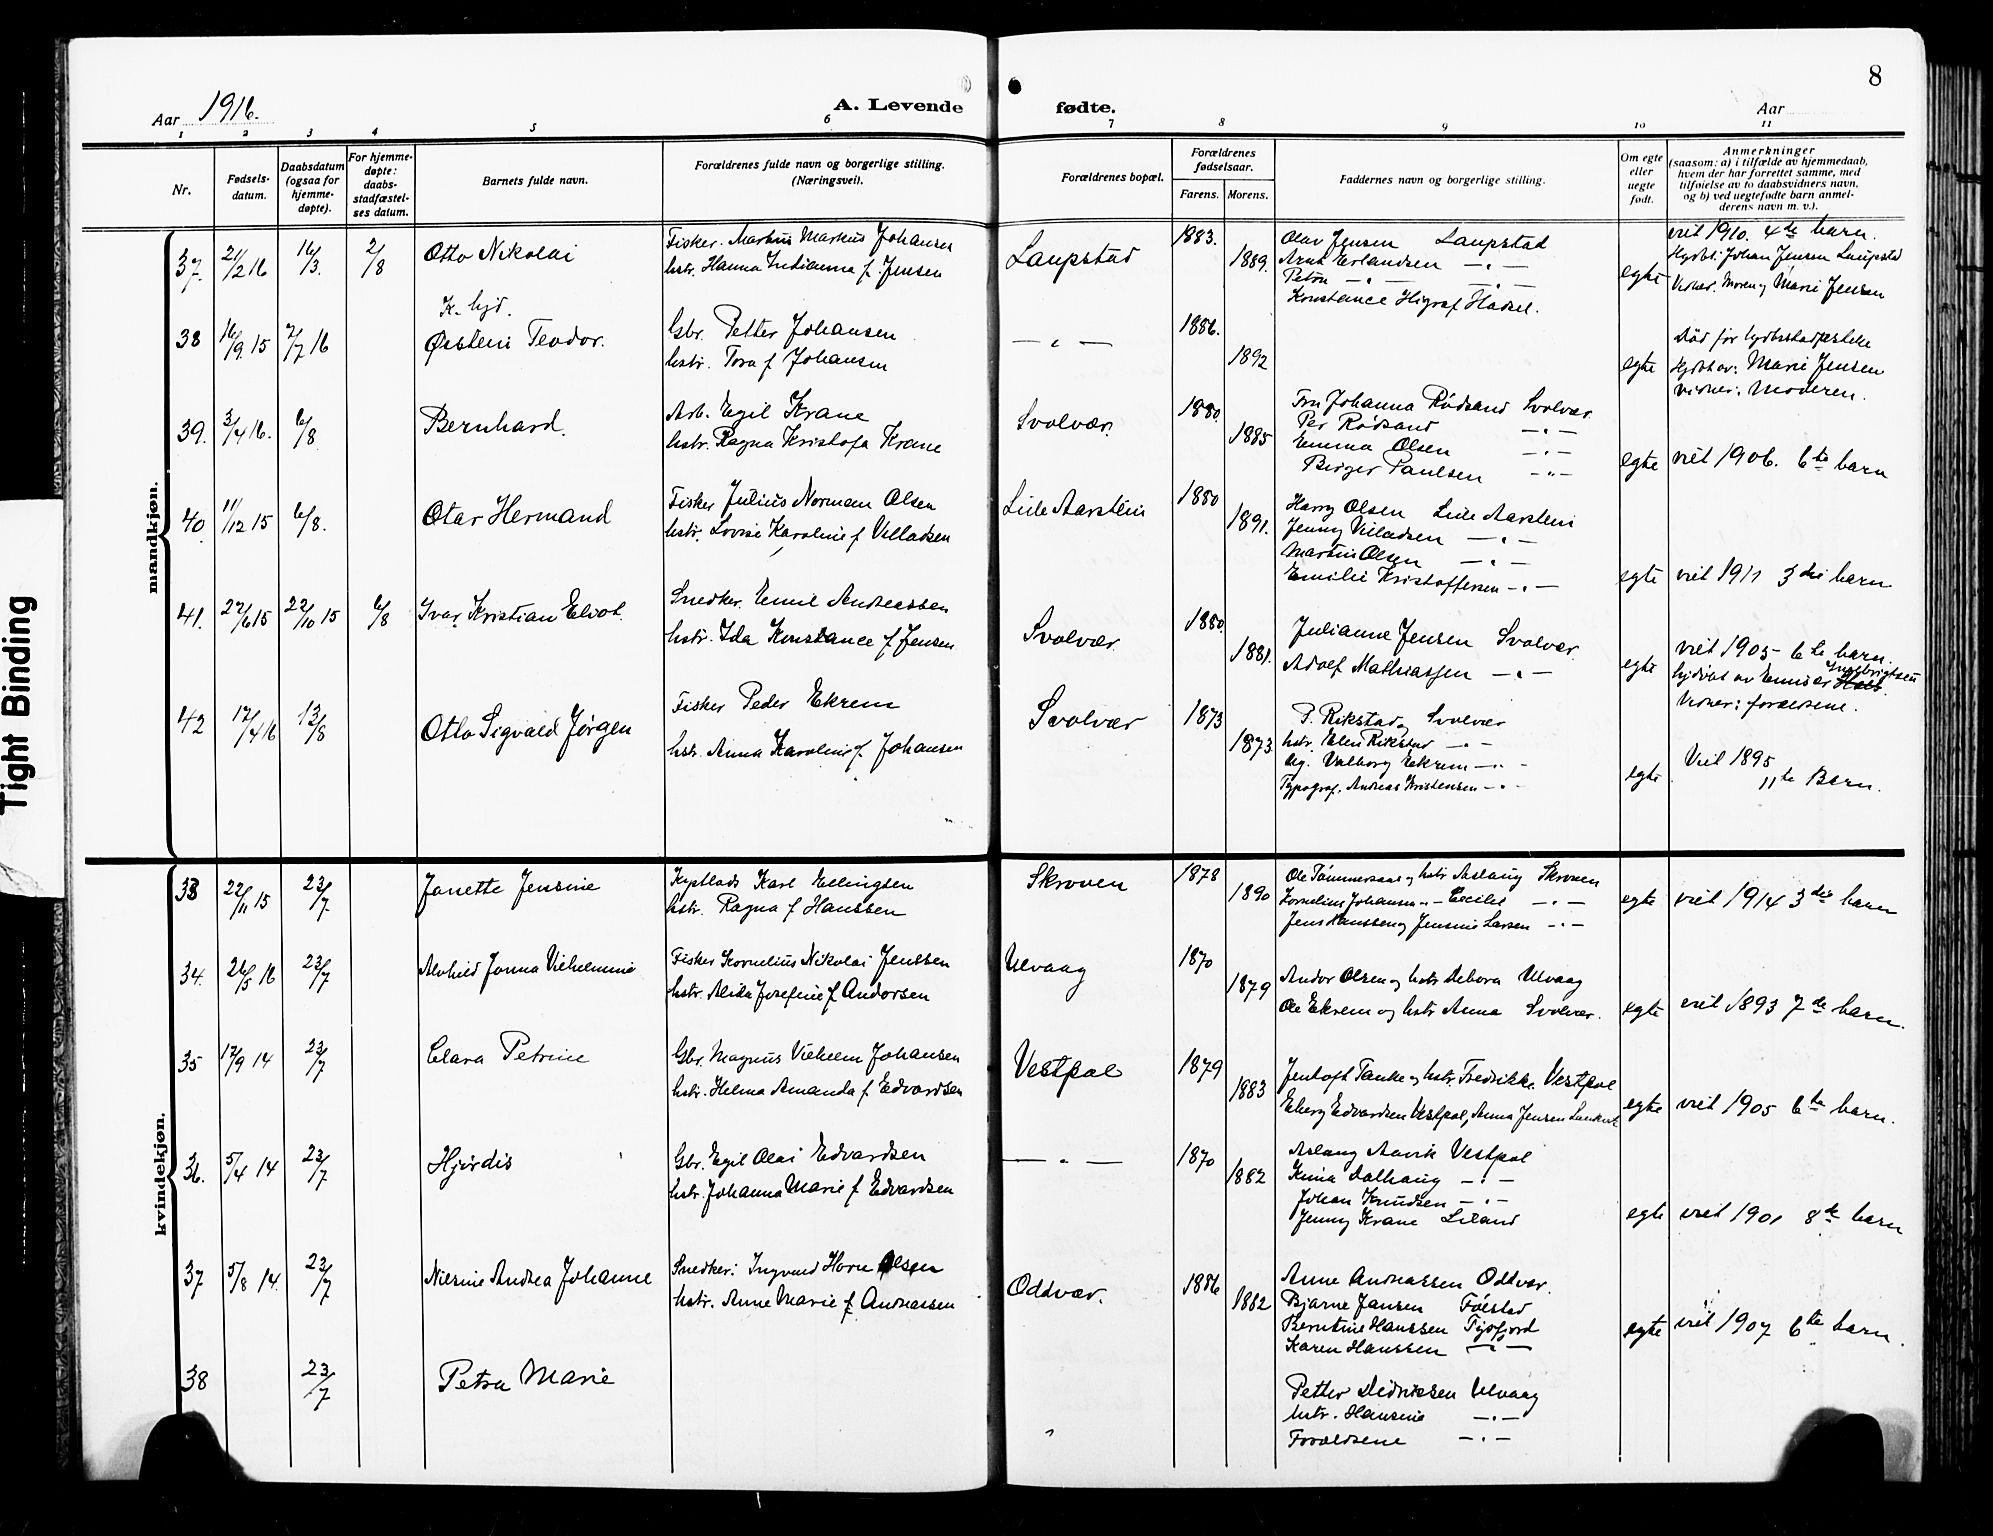 8
Aar 1916.
A. Levende fødte.
Aar
1 2 3 4 5 6 7 8 9 10 11
Nr.
Fødsels-
datum.
Daabsdatum
(ogsaa for
hjemme-
døpte).
For hjemme-
døpte:
daabs-
stadfæstel-
ses datum.
Barnets fulde navn.
Forældrenes fulde navn og borgerlige stilling.
(Næringsvei).
Forældrenes bopæl.
Forældrenes
fødselsaar.
Farens. Morens.
Faddernes navn og borgerlige stilling.
Om egte
eller
uegte
født.
Anmerkninger
(saasom: a) i tilfælde av hjemmedaab,
hvem der har forrettet samme, med
tilføielse av to daabsvidners navn,
og b) ved uegtefødte barn anmel-
derens navn m. v.).
mandkjøn.
37. 21/2 16 16/3. 2/8 Otto Nikolai
Fisker. Markus Johansen
hstr. Hanna Indianna f. Jensen
Laupstad 1883. 1889.
Olav Jensen Laupstad
Arnt Erlandsen — " —
Petra — " — — " —
Konstance Hadsel.
egte
viet 1910. 4de barn.
Hjdbt: Johan Jensen Laupstad
Vidner. Moren og Marie Jensen
K. hjd.
38 16/9 15 2/7 16 Øistein Teodor.
Gbr. Petter Johansen
hstr. Tora f Johansen
— " — 1886. 1892
egte
Død før hjdbstadfestelse
Hjdbt av: Marie Jensen
vidner: Moderen.
39. 3/4 16. 6/8 Bernhard.
Arb. Egil Krane
hstr. Ragna Kristofa Krane
Svolvær. 1880. 1885
Fru Johanna Rødsand Svolvær
Per Rødsand — " —
Emma Olsen — " —
Birger Paulsen — " —
egte viet 1906. 6te barn
40. 11/12 15 6/8. Otar Hermand
Fisker Julius Norman Olsen
hstr. Lovise Karoline f Villadsen
Lille Aarstein 1880 1891.
Harry Olsen Lille Aarstein
Jenny Villadsen — " —
Martin Olsen — " —
Emilie Kristoffersen — " —
egte viet 1911 3die barn
41. 22/6 15 22/10 15 6/8 Ivar Kristian Eliot.
Snedker. Emil Andreassen
hstr. Ida Konstance f Jensen
Svolvær. 1880. 1881.
Julianne Jensen Svolvær.
Adolf Mathiassen — " —
egte
viet 1905 - 6te barn.
hjdøbt av Ingebrigtsen
Vidner: forældrene.
42 17/4 16 13/8 Otto Sigvald Jørgen
Fisker Peder Ekrem
hstr. Anna Karoline f. Johansen
Svolvær 1873 1873.
P. Rikstad, Svolvær
hstr. Elen Rikstad — " —
Ug. Valborg Ekrem — " —
Typograf. Andreas Kristensen — " —
egte
Viet 1895
11te Barn.
kvindekjøn.
33 22/11 15 23/7 Janette Jensine
Karl Ellingsen
hstr. Ragna f Hanssen
Skroven 1878 1890
Ole Tømmeraas og hstr Aslaug Skroven
Kornelius Johansen " — Cecilie — " —
Jens Hanssen og Jensine Larsen — " —
egte viet 1914 3die barn
34. 26/5 16 23/7 Alvhild Janna Vilhelmine
Fisker Kornelius Nikolai Jenssen
hstr. Alida Josefine f Andorsen
Ulvaag 1870 1879
Andor Olsen og hstr Debora Ulvaag
Ole Ekrem og hstr Anna Svolvær.
egte viet 1893 7de barn.
35 17/9 14 23/7 Clara Petrine
Gbr. Magnus Vilhelm Johansen
hstr. Helma Amanda f Edvardsen
Vestpol 1879 1883
Jentoft Tanke og hstr. Fredrikke. Vestpol
Elberg Edvardsen Vestpol, Anna Jensen
egte viet 1905 6te barn.
36. 5/4 14 23/7 Hjørdis
Gbr. Egil Olai Edvardsen
hstr. Johanna Marie f Edvardsen
— " — 1870 1882
Aslaug Aavik Vestpol
Dalhaug — " —
Johan Knudsen — " —
Jenny Krane Liland
egte viet 1901 8de barn
37 5/8 14. 23/7 Nilsine Andrea Johanne
Snedker: Ingvard Horn Olsen
hstr. Anne Marie f Andreassen
Oddvær. 1886 1882
Anne Andreassen Oddvær.
Bjarne Jansen Følstad
Berntine Hanssen Tysfjord
Karen Hanssen — " —
egte viet 1907 6te barn.
38 23/7 Petra Marie
Petter Didriksen Ulvaag
hstr. Hansine — " —
Forældrene — " —
Tight Binding